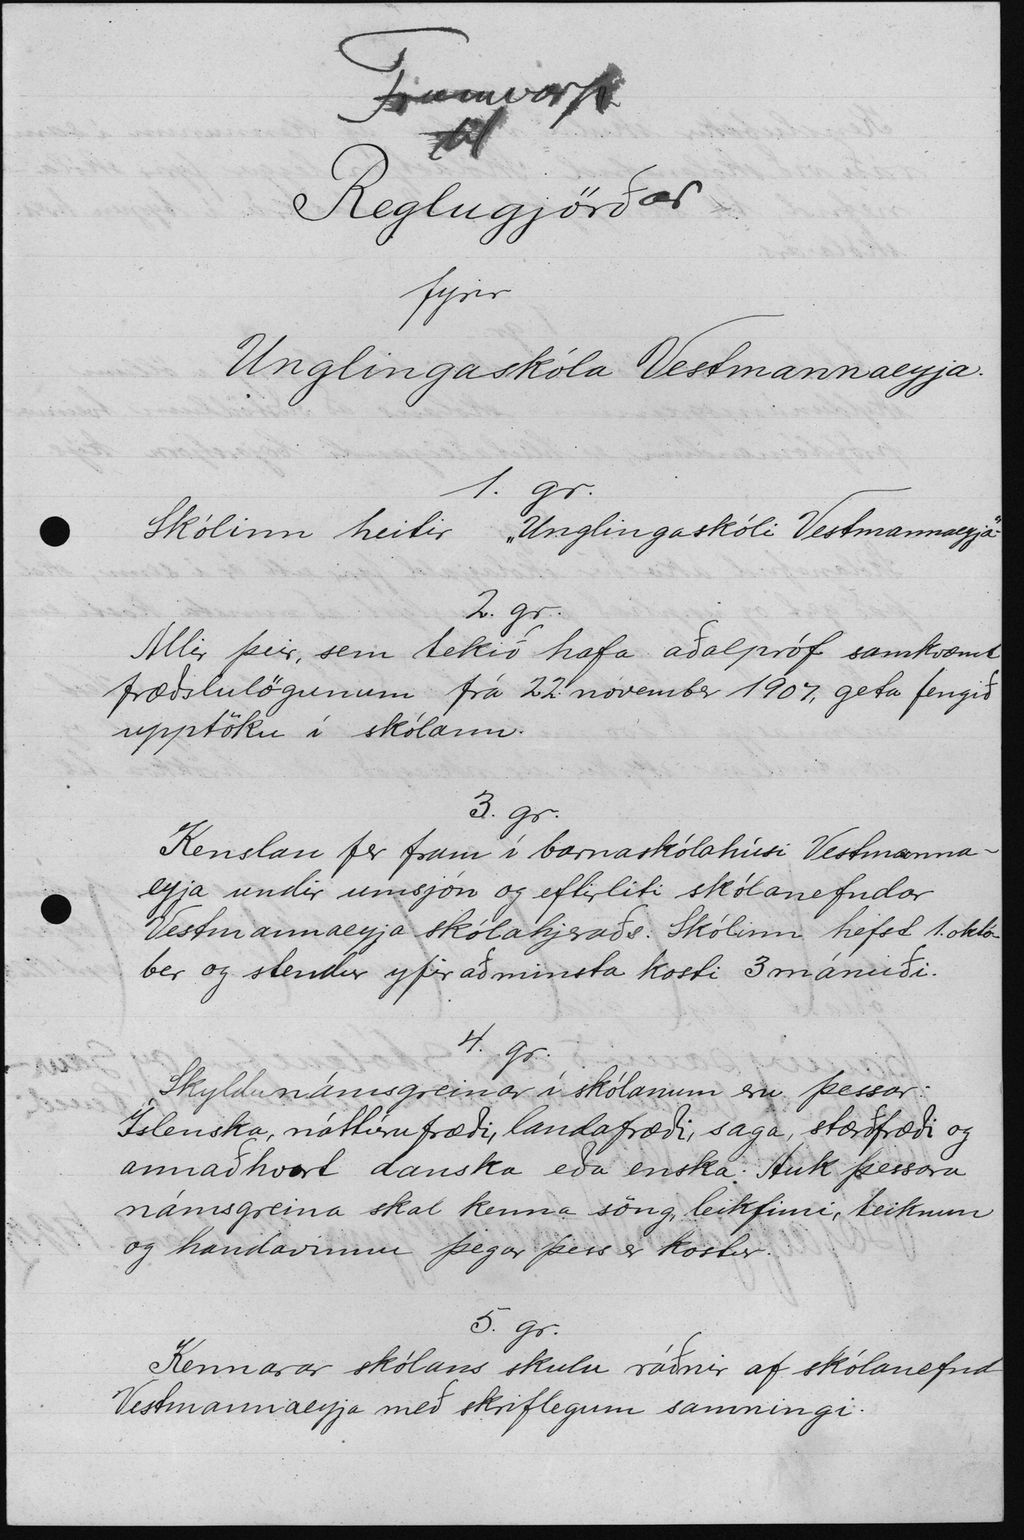 Frumvarp
til
Reglugjörðar
fyrir
Unglingaskóla Vestmannaeyja.
1. gr.
Skólinn heitir „Unglingaskóli Vestmannaeyja“
2. gr.
Allir þeir, sem tekið hafa aðalpróf samkvæmt
fræðslulögunum frá 22. nóvember 1907, geta fengið
upptöku í skólann.
3. gr.
Kenslan fer fram í barnaskólahúsi Vestmanna-
eyja undir umsjón og eftirliti skólanefndar
Vestmannaeyja skólahjeraðs. Skólinn hefst 1. októ-
ber og stendur yfir að minsta kosti 3 mánuði.
4. gr.
Skyldunámsgreinar í skólanum eru þessar:
Íslenska, náttúrufræði, landafræði, saga, stærðfræði og
annaðhvort danska eða enska. Auk þessara
námsgreina skal kenna söng, leikfimi, teiknun
og handavinnu þegar þess er kostur.
5. gr.
Kennarar skólans skulu ráðnir af skólanefnd
Vestmannaeyja með skriflegum samningi.